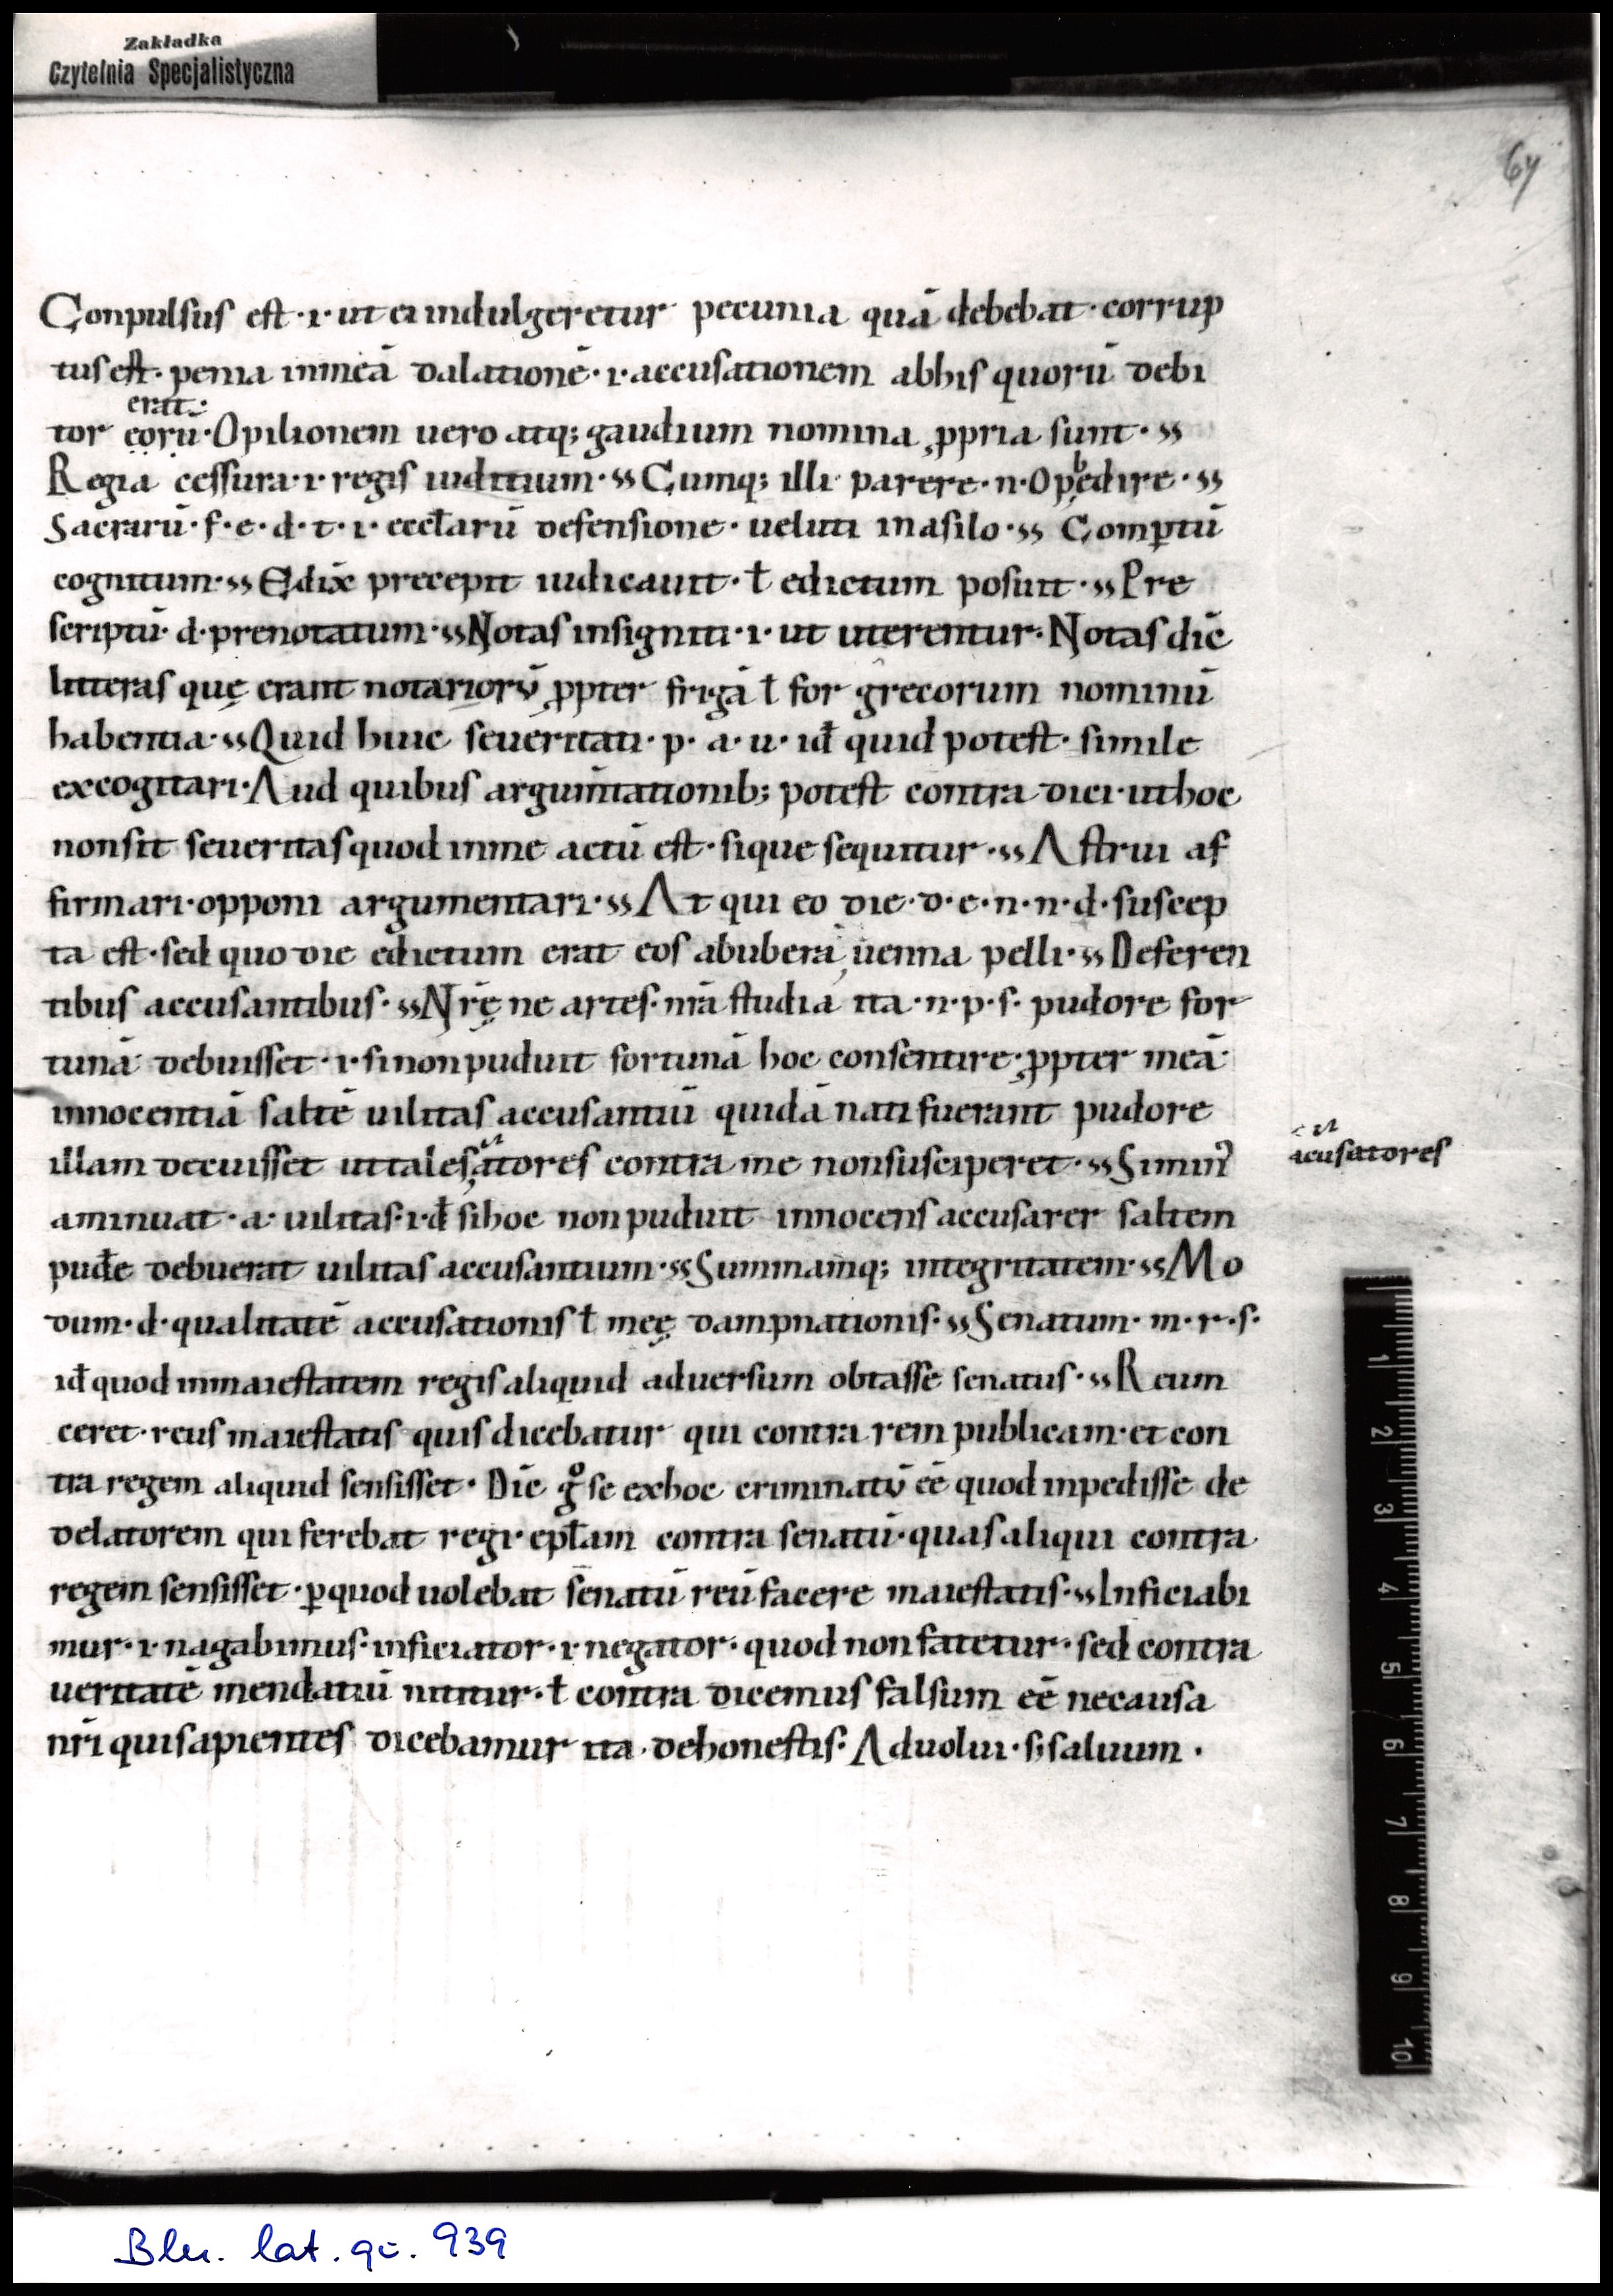 Zakładka
Czytelnia Specjalistyczna
64
Conpulsus est·i·ut ei indulgeretur pecunia quā debebat·corrup
tus est·penia inmeā dalationē·i·accusationem abhis quorū debi
erat·
tor eorū·Opilionem uero atq; gaudium nomina ꝓpria sunt·
Regia cessura·i·regis iuditium· Cumq; illi parere·n·Opbedire·
Sacrarū·f·e·d·t·i·eccl̄arū defensione·ueluti inasilo· Comꝑtū
cognitum· Edix̄ precepit iudicauit·ł edictum posuit· Pre
scriptū·d·prenotatum· Notas insigniti·i·ut uterentur·Notas dic̄
litteras quę erant notariorū ꝓpter frigā ł for grecorum nominū
habentia· Quid huic seueritati·p·a·u·id̄ quid potest·simile
excogitari·Aud quibus argum̄tationib; potest contra dici·uthoc
nonsit seueritas quod inme actū est·sique sequitur· Astrui af
firmari·opponi argumentari· At qui eo die·d·e·n·n·d·suscep
ta est·sed quo die edictum erat eos abubera, uenna pelli· Deferen
tibus accusantibus· Nr̄ę ne artes·nr̄a studia ita·n·p·s·pudore for
tunā debuisset·i·sinonpuduit fortunā hoc consentire·ꝓpter meā·
innocentiā saltē uilitas accusantiū quidā nati fuerant pudore
illam decuisset uttales, atores contra me nonsusciperet· Simin᷒
acusatores
aminuat·a·uilitas·i·d̄ sihoc nonpuduit innocens accusarer saltem
pud̄e debuerat uilitas accusantium· Summamq; integritatem· Mo
dum·d·qualitatē accusationis ł meę dampnationis· Senatum·m·r·s·
id̄ quod inmaiestatem regis aliquid aduersum obtasse senatus· Reum
ceret·reus maiestatis quis dicebatur qui contra rem publicam·et con
tra regem aliquid sensisset·Dic̄ gͦ se exhoc criminatū eē quod inpedisse de
delatorem qui ferebat regi·epl̄am contra senatū·quas aliqui contra
regem sensisset·ꝑquod uolebat senatū reū facere maiestatis· Inficiabi
mur·i·nagabimus·inficiator·i·negator·quod non fatetur·sed contra
ueritatē mendatiū nititur·ł contra dicemus falsum eē necausa
nr̄i qui sapientes dicebamur ita·dehonestis·Aduolui·s; saluum·
1
2
3
4
5
6
7
8
9
10
lat. qu. 939